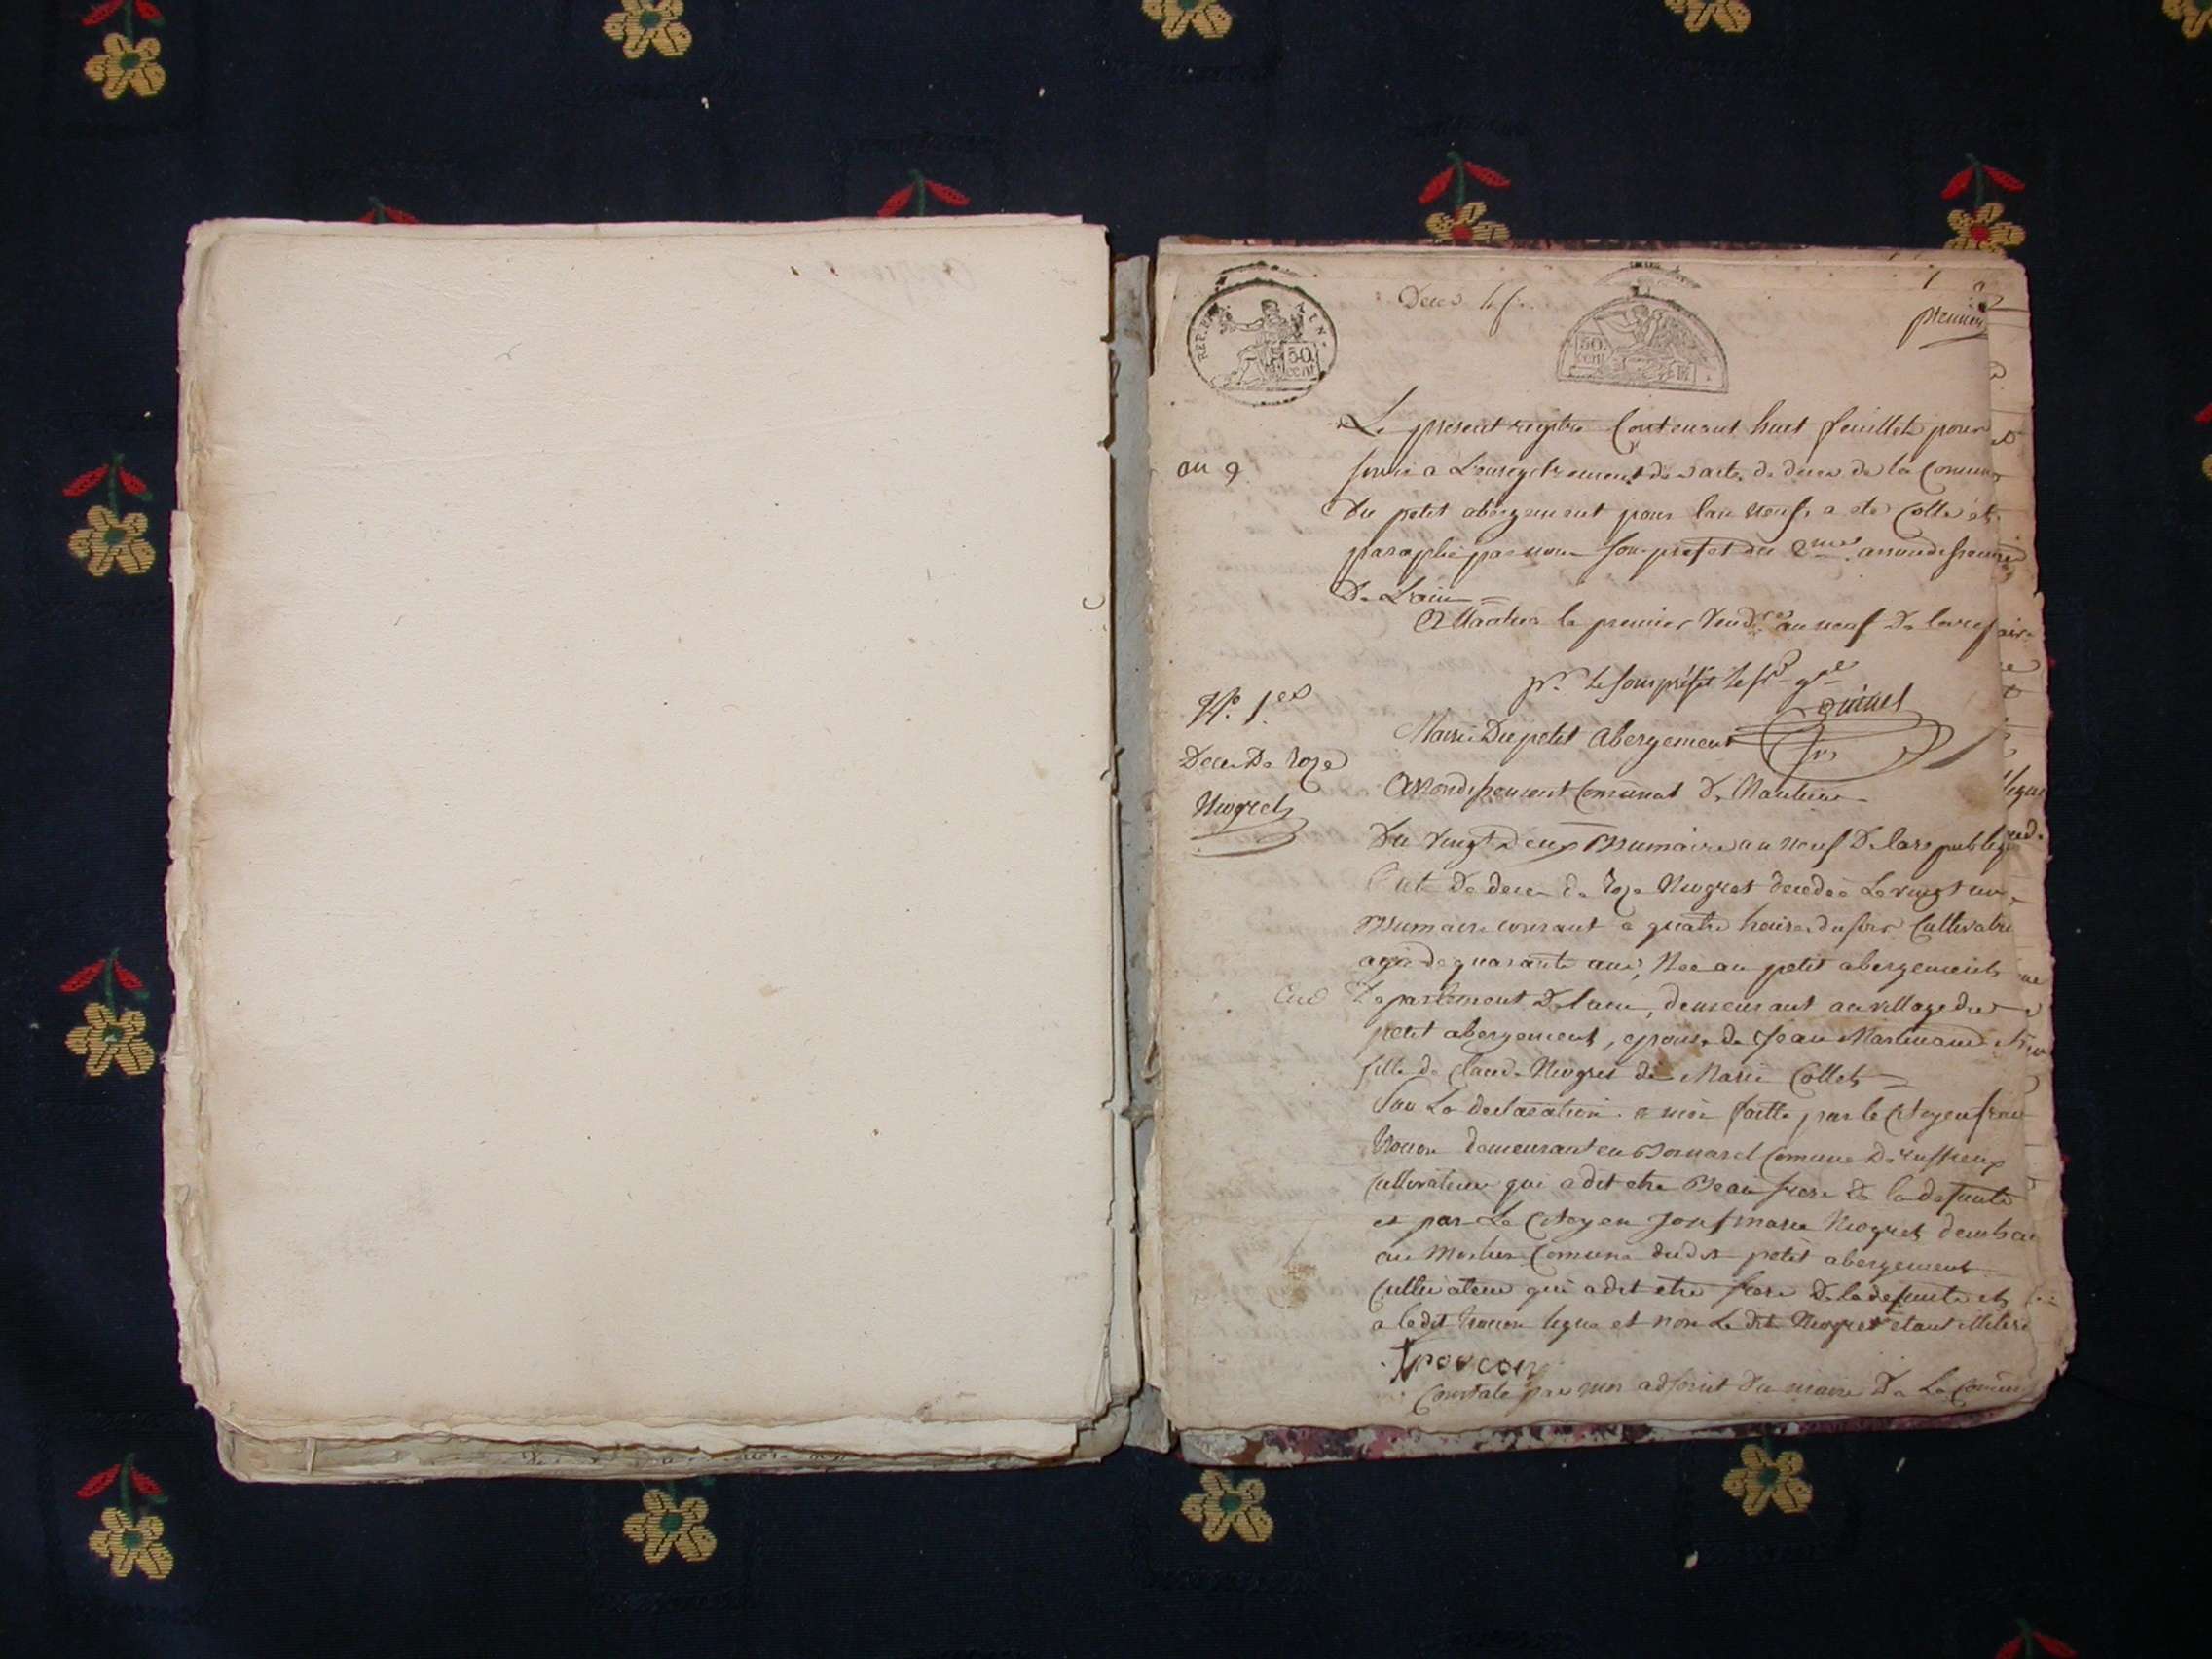 Deces
premier
REP.
AIN
50.
cent
50.
cent
Le present registre Contenant huit feuillets pour
an 9
servir a L'enregistrement des actes de deces de la Comune
Du petit abergement pour l'an neuf, a eté Cotté et
paraphé par nous sous prefet du 2me arrondissement
De L'ain =
A Nantua le premier Vend.re an neuf De la rep
pr. Le sous préfet
N.º 1.er
Mairie Du petit Abergement
Deces De Roze
Niogret
Arrondissement Comunal De Nantua
Du vingt Deux Brumaire an neuf De la republique
Acte De deces de Roze Niogret decedée Le vingt un
Brumaire courant a quatre heures du soir Cultivatrice
agée de quarante ans, Née au petit abergement
Departement De l'ain, demeurant au village du
petit abergement, epouse de Jean Martinand
fille de Claude Niogret de Marie Collet
Sur La declaration a moi faitte par le Citoyen
demeurant en Bornarel Comune De ruffieux
Cultivateur qui a dit etre Beau frere de la defunte
et par Le Citoyen Josef marie Niogret
au Comune dudit petit abergement
Cultivateur qui a dit etre frere De la defunte et
a ledit signé et non Le dit Niogret etant illiteré
Constaté par moi adjoint Du maire De La Comune